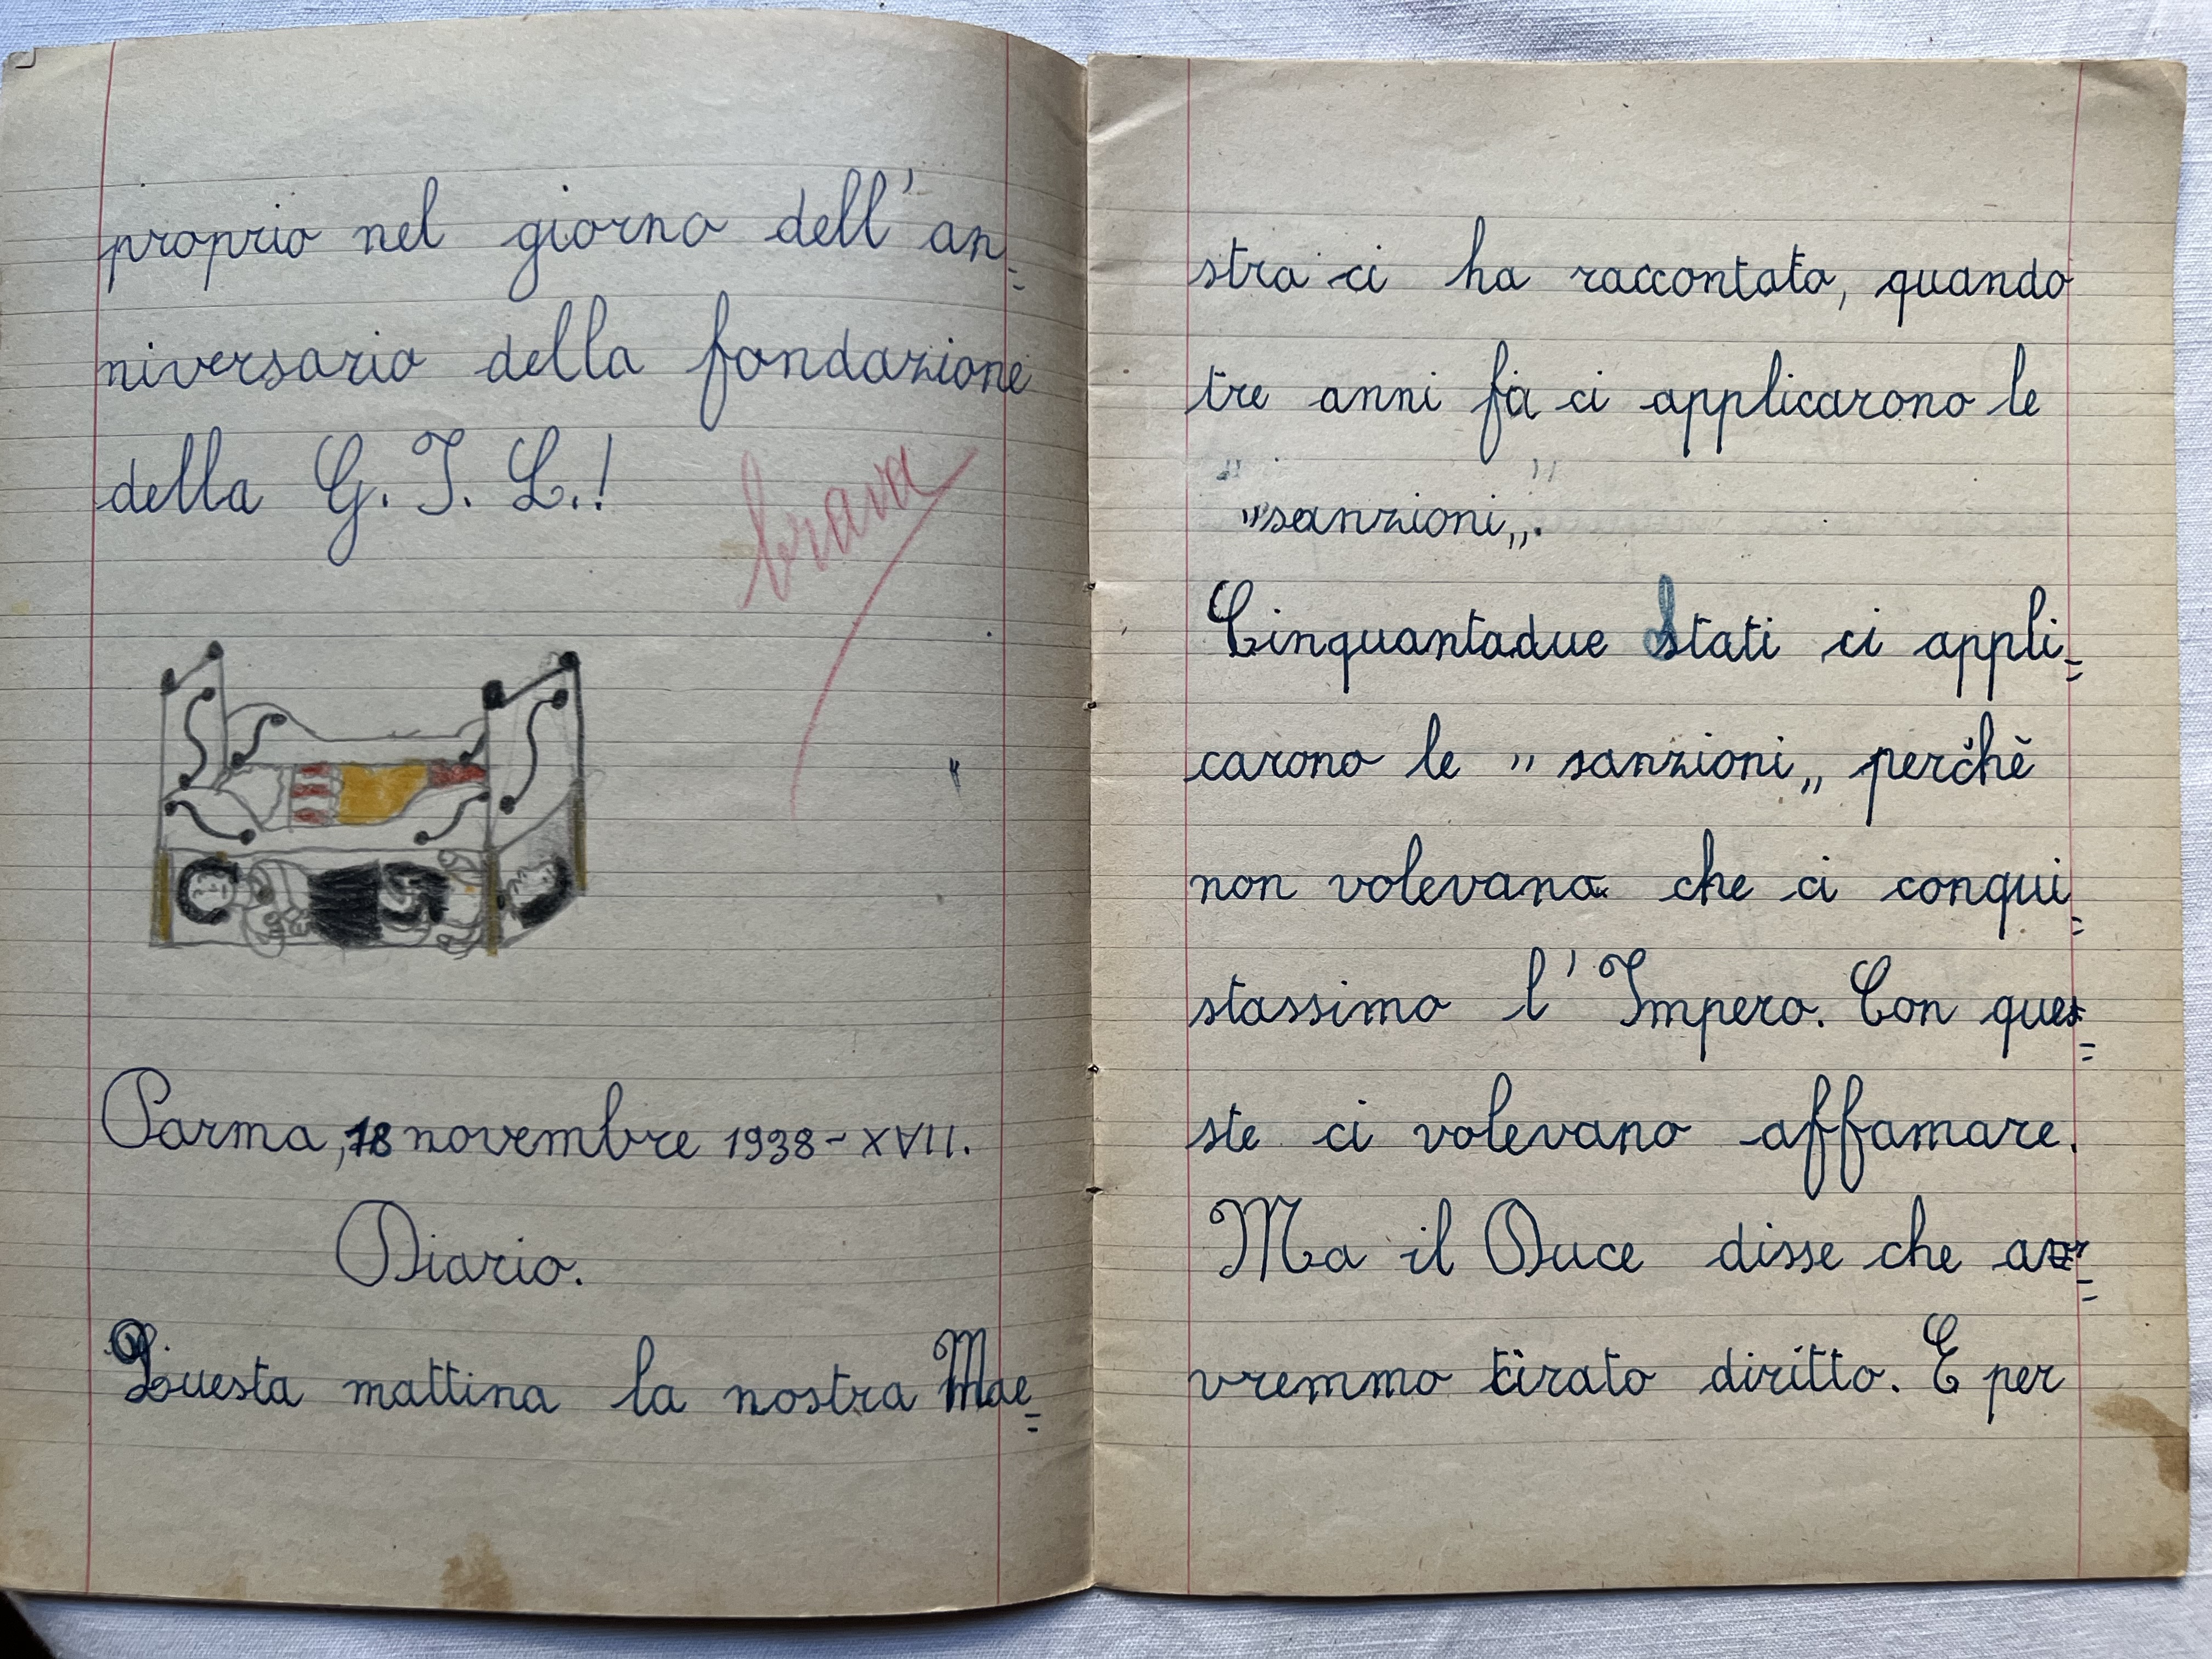 proprio nel giorno dell'an=
niversario della fondazione
della G. I. L.!
brava
Parma, 18 novembre 1938-XVII.
Diario.
Questa mattina la nostra Mae=
stra ci ha raccontato, quando
tre anni fa ci applicarono le
"sanzioni„.
Cinquantadue Stati ci appli=
carono le "sanzioni„ perchè
non volevano che ci conqui=
stassimo l'Impero. Con que=
ste ci volevano affamare.
Ma il Duce disse che a=
vremmo tirato diritto. E per